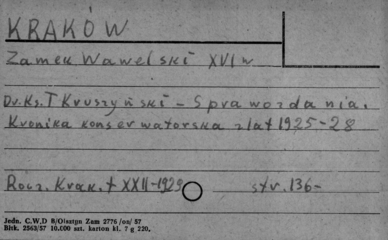 KRAKÓW
Zamek Wawelski XVI w
Dr. Ks. T Kruszyński - Sprawozdania.
Kronika konserwatorska z lat 1925-28
Rocz. Krak. t XXII-1929 str. 136-
Jedn. C.W.D 8/Olsztyn Zam 2776 /oz/ 57
Bltk. 2563/57 10.000 szt. karton kl. 7 g 220.